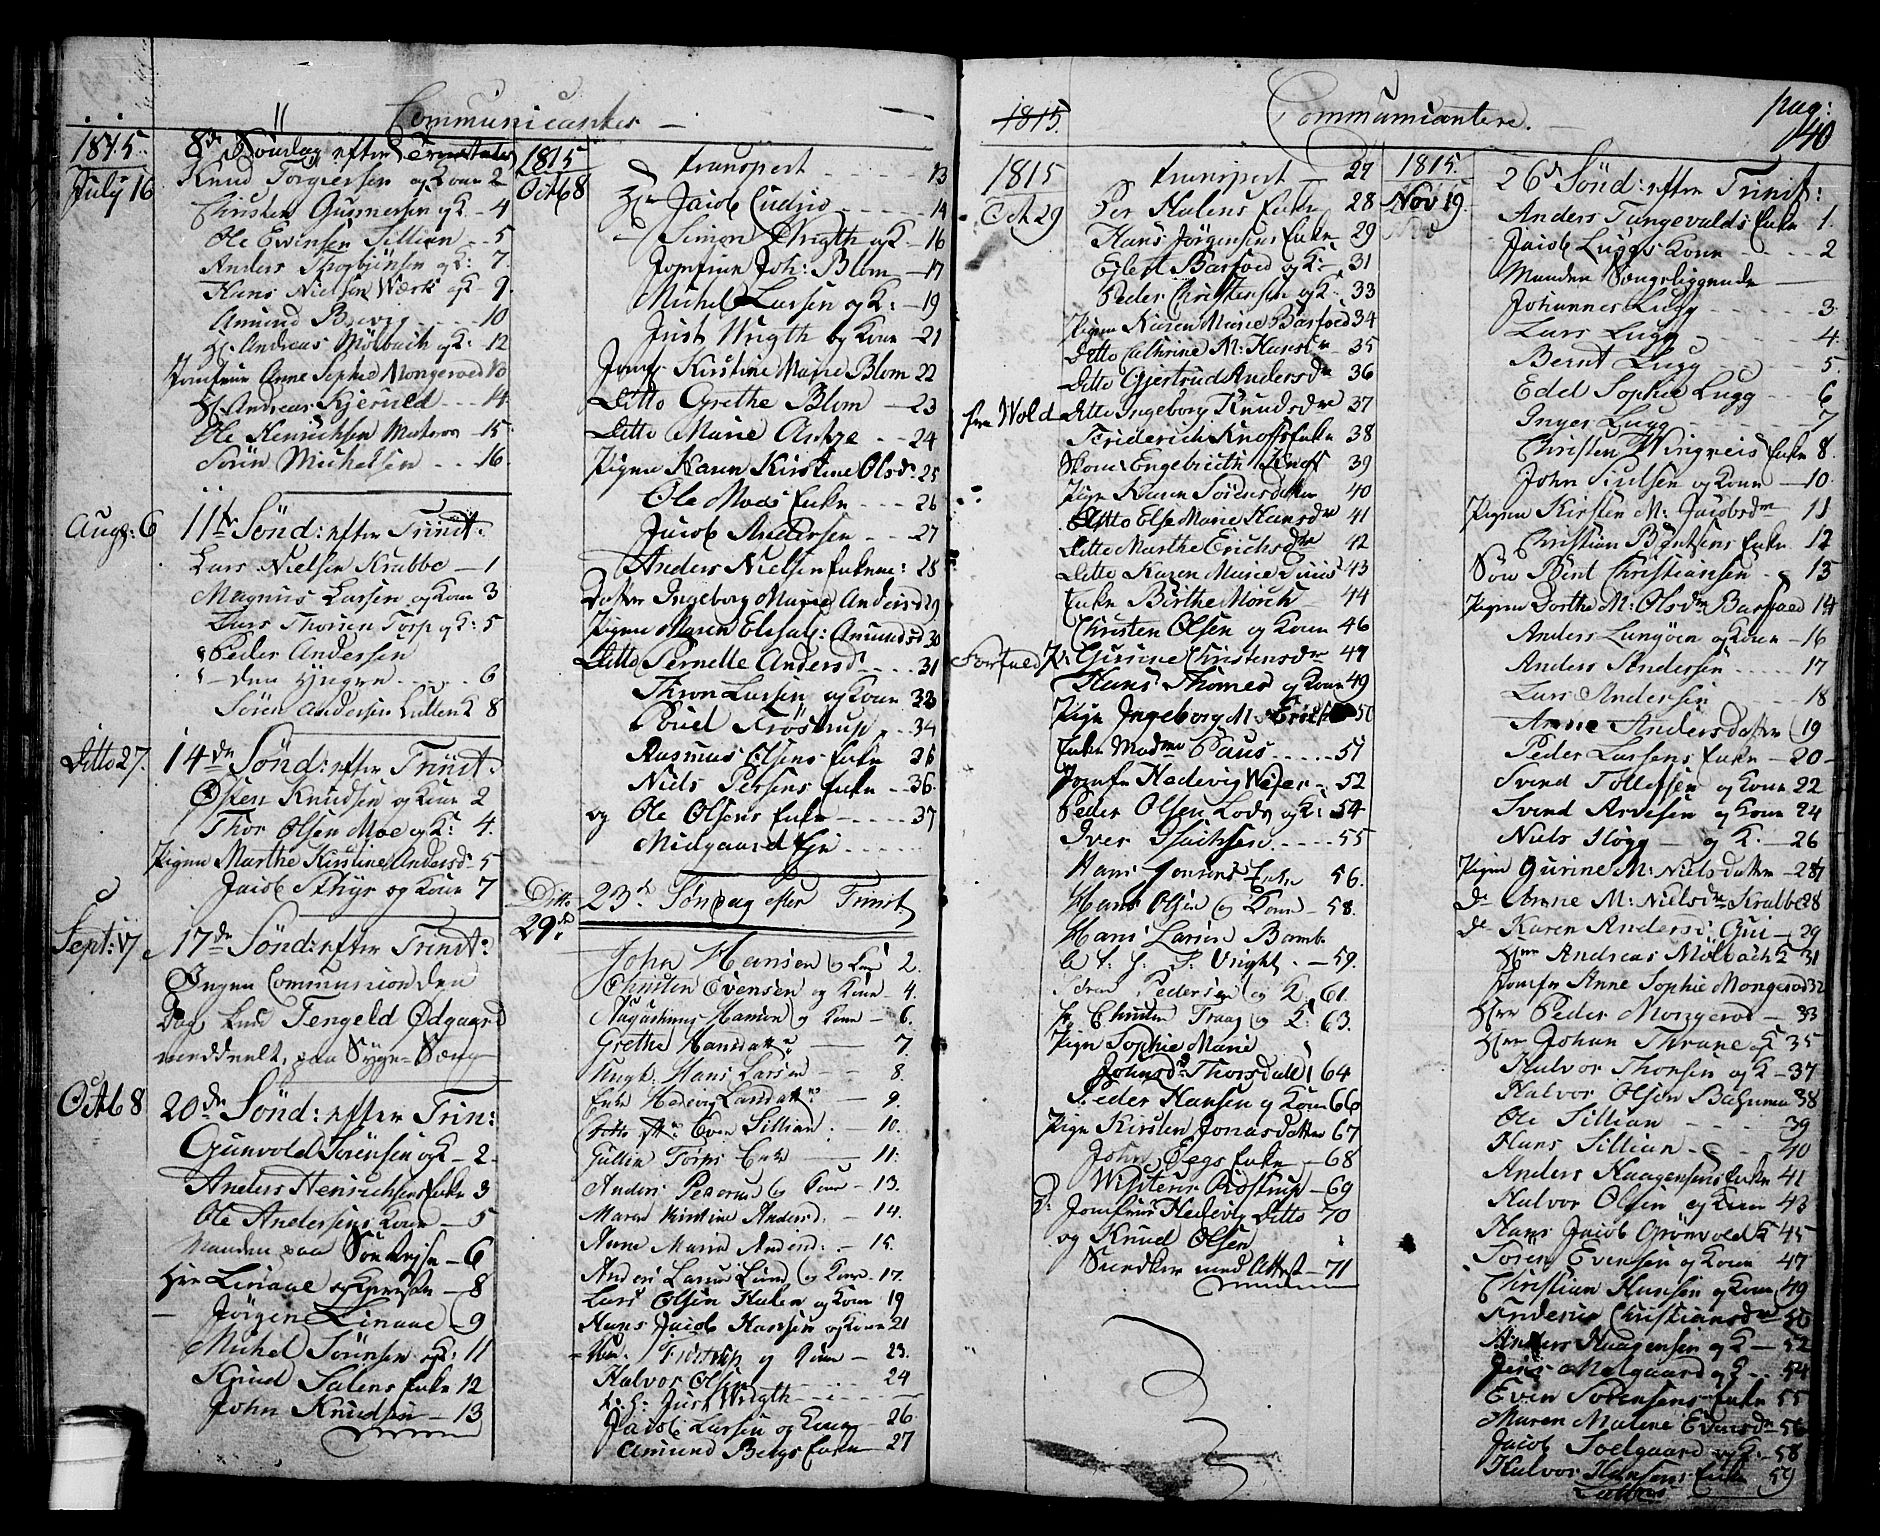 Communicanter
1815
July 16
8de Søndag efter Trinitatis
Knud Torgiersen og Kone 2
Christen Gunnersen og K. 4
Ole Evensen Sillian 5
Anders Thorbjönsen og K: 7
Hans Nielsen Werk og K 9.
Amund Bævig 10
Hr. Andreas Mölbach og K: 12
Jomfrue Anne Sophie Mongeroed 13
Hr. Andreas Kjeruld 14
Ole Henrichsen 15
Sörin Michelsen 16.
Aug: 6
11te Sönd: efter Trinit:
Lars Nielsen Krabbe 1
Magnus Larsen og Kone 3
Lars Thorsen Torp og K: 5
Peder Andersen
den Yngre 6
Sören Andersen K 8
Ditto 27.
14de Sönd: efter Trinit:
Østen Knudsen og Kone 2
Thor Olsen Moe og K: 4.
Pigen Marthe Kirstine Andersd. 5
Jacob Sthyr og Kone 7
Sept: 17
17de Sönd: efter Trinit:
Ingen Communion den
Dag, kun Tengeld Ødgaard
meddeelt, paa Syge-Seng
Octb 8
20de Sönd: efter Trin:
Gunvold Sörensen og K 2
Anders Henrichsens Enke 3
Ole Andersens Kone 5
Manden paa Söe Rejse 6
Herr Linaae og Kjereste 8
Jörgen Linaae 9
Michel Sörensen og K: 11
Knud Salens Enke 12
John Knudsen 13
1815
Octb 8
transport 13
Hr Jacob 14
Simon Wrigth og K 16
Jomfrue Joh: Blom 17
Michel Larsen og K: 19
Just Wrigth og Kone 21
Jomf. Kirstine Marie Blom 22
Ditto Grethe Blom 23
Ditto Marie 24
Pigen Karen Kirstine Olsdr 25
Ole Moes Enke 26
Jacob Andersen 27
Anders Nielsen 28
Datter Ingeborg Marie Andersd 29
Pigen Maren Elisab: Amundsd 30
Ditto Pernelle Andersd 31
Thron Larsen og Kone 33
Poul Fröstrup 34
Rasmus Olsens Enke 35
Niels Persens Enke 36
og Ole Olsens Enke 37
Midgaard Eje
Ditto
29de
23de Søndag efter Trinit.
John Hansen og Kone 2.
Christen Evensen og Kone 4.
Augustinus Hansen og Kone 6.
Grethe Hansdatter 7.
Ungk: Hans Larsen 8.
Enke Hedevig Larsdatter 9.
Ditto Even Sillian 10.
Gullin Torps Enke 11.
Anders og Kone 13.
Maren Kirstine Andersd: 14.
Anne Maria Andersd: 15.
Anders Larsen Lund og Kone 17.
Lars Olsen Haken og Kone 19
Hans Jacob Hansen og Kone 21
Fröstrup og Kone 23.
Halvor Olsen 24
Just Wrigth
Jacob Larsen og Kone 26
Amund Bergs Enke 27
1815.
Communicantere.
pag:
40
1815
Oct 29
transport 27
Per Halens Enke 28
Hans Jörgensens Enke 29
Eylert Barfoed og K: 31
Peder Christensen og K: 33
Pigen Karen Marie Barfoed 34
Ditto Cathrine M: Hansdr 35
Ditto Gjertrud Andersdr 36
fra Wold Ditto Ingeborg Knudsdr 37
Friderich Knoffs Enke 38
Skom: Engebreth Knoff 39
Pige Karen Sörensdatter 40
Ditto Else Marie Hansdr 41
Ditto Marthe Erichsdr 42
Ditto Karen Marie 43
Enke Birthe Morch 44
Christen Olsen og Kone 46
P: Gurine Christensdr 47
Hans Thomes og Kone 49
Pige Ingeborg M. 50
Enke Madme Paus 51
Jomfr Hedevig Wejer 52
Peder Olsen og K: 54
Iver Isachsen 55
Hans Jensens Enke 56.
Hans Olsen og Kone 58.
Hans Larsen Bamb
Wright 59.
Sören Pedersen og K. 61.
Hr Christen Traag og K: 63.
Pige Sophie Marie
Johnsdr Thorsdal 64
Peder Hansen og Kone 66
Pige Kirsten Jonasdatter 67
John Enke 68
Röstrup 69
Jomfrue Hedevig Ditto 70
og Knud Olsen
med Attest 71
1815.
Nov 19.
26de Sönd: efter Trinit:
Anders Tangevalds Enke 1.
Jacob Luggs Kone 2
Manden Sengeliggende
Johannes Lugg 3.
Lars Lugg 4.
Bernt Lugg 5.
Edel Sophie Lugg 6
Inger Lugg 7
Christen Wingreis Enke 8.
John og Kone 10.
Pigen Kirsten M: Jacobsdr 11
Christian Bentsens Enke 12
Sön Bent Christiansen 13
Pigen Dorthe M: Olsdr Barfoed 14
Anders Lungöen og Kone 16
Anders Andersen 17
Lars Andersen 18
Anne Andersdatter 19
Peder Larsens Enke 20
Svend Tollefsen og Kone 22
Svend Arvesen og Kone 24
Niels Högg og K. 26
Pigen Gurine M: Nielsdatter 27
Do Anne M: Nielsdr Krabbe 28
do Karen Anders: 29
Herr Andreas Mölbach K 31
Jomfr Anne Sophie Mongeroed 32
Herr Peder Mongeroe 33
Herr Johan Thrane og K 35
Halvor Thorsen og K 37
Halvor Olsen 38
Ole Sillian 39
Hans Sillian 40
Anders Haagensens Enke 41
Halvor Olsen og Kone 43
Hans Jacob Grönvold K 45
Sören Evensen og Kone 47
Christian Hansen og Kone 49
Friderica Christiansdr 50
Anders Haagensen og K 52
Jens Melgaard og K 54
Even Sörensens Enke 55
Maren Malene Evensdr 56
Jacob Soelgaard og K: 58
Halvor Hansens Enke 59